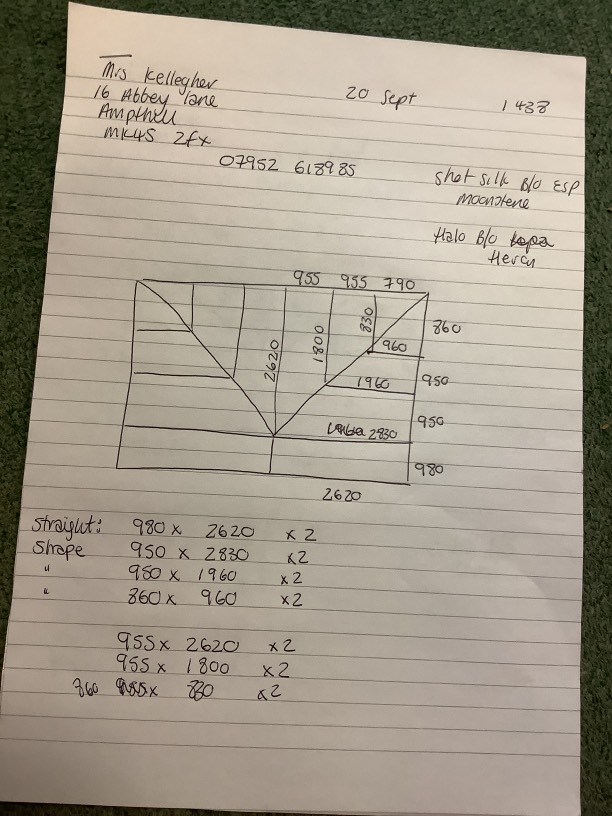 Mrs Kellegher
16 Abbey lane
Ampthill
MK45 2fx
20 Sept
1438
07952 618985
Shot silk B/O ESP
moonstone
Halo B/O
955 955 790
2620 1800 830
860
960
1960
950
2830
950
980
2620
straight: 980 x 2620 x 2
Shape 950 x 2830 x2
" 950 x 1960 x2
" 860 x 960 x2
955 x 2620 x2
955 x 1800 x2
x 830 x2